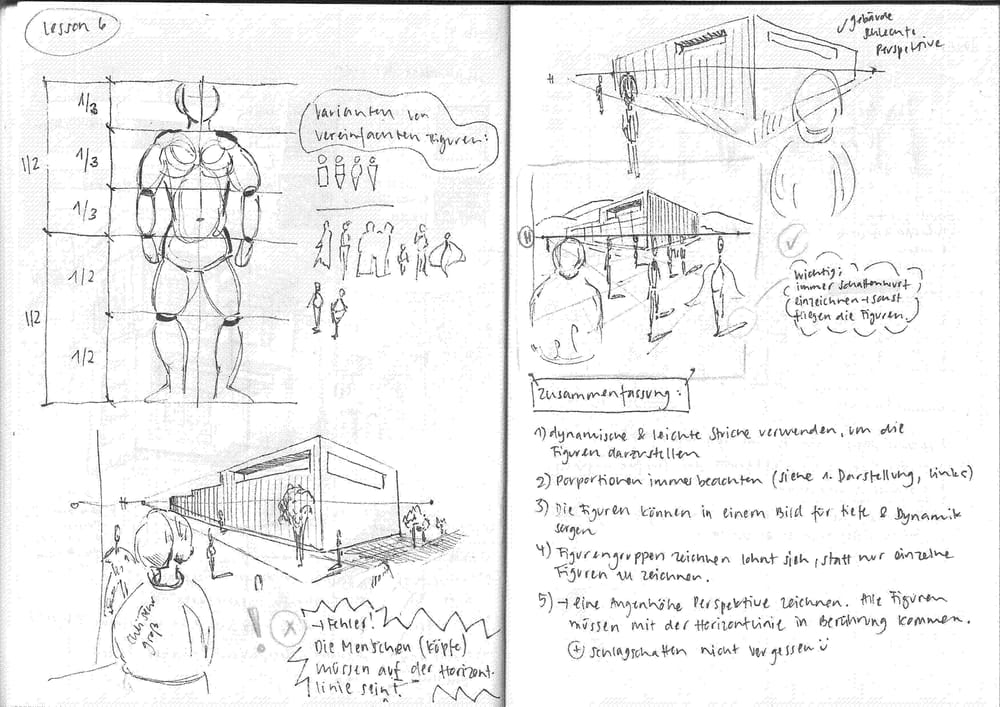 Lesson 6
1/3
1/3
1/3
1/2
1/2
1/2
1/2
Varianten von
vereinfachten Figuren:
H
→ Fehler!
Die Menschen (Köpfe)
müssen auf der Horizont-
linie sein!
groß
Gebäude
schlechte
Perspektive
H
H
Wichtig:
immer Schattenwurf
einzeichnen → sonst
fliegen die Figuren.
Zusammenfassung:
1) dynamische & leichte Striche verwenden, um die
Figuren darzustellen
2) Porportionen immer beachten (siehe 1. Darstellung, links)
3) Die Figuren können in einem Bild für Tiefe & Dynamik
sorgen
4) Figurengruppen zeichnen lohnt sich, statt nur einzelne
Figuren zu zeichnen.
5) → eine Augenhöhe Perspektive zeichnen. Alle Figuren
müssen mit der Horizontlinie in Berührung kommen.
+ Schlagschatten nicht vergessen